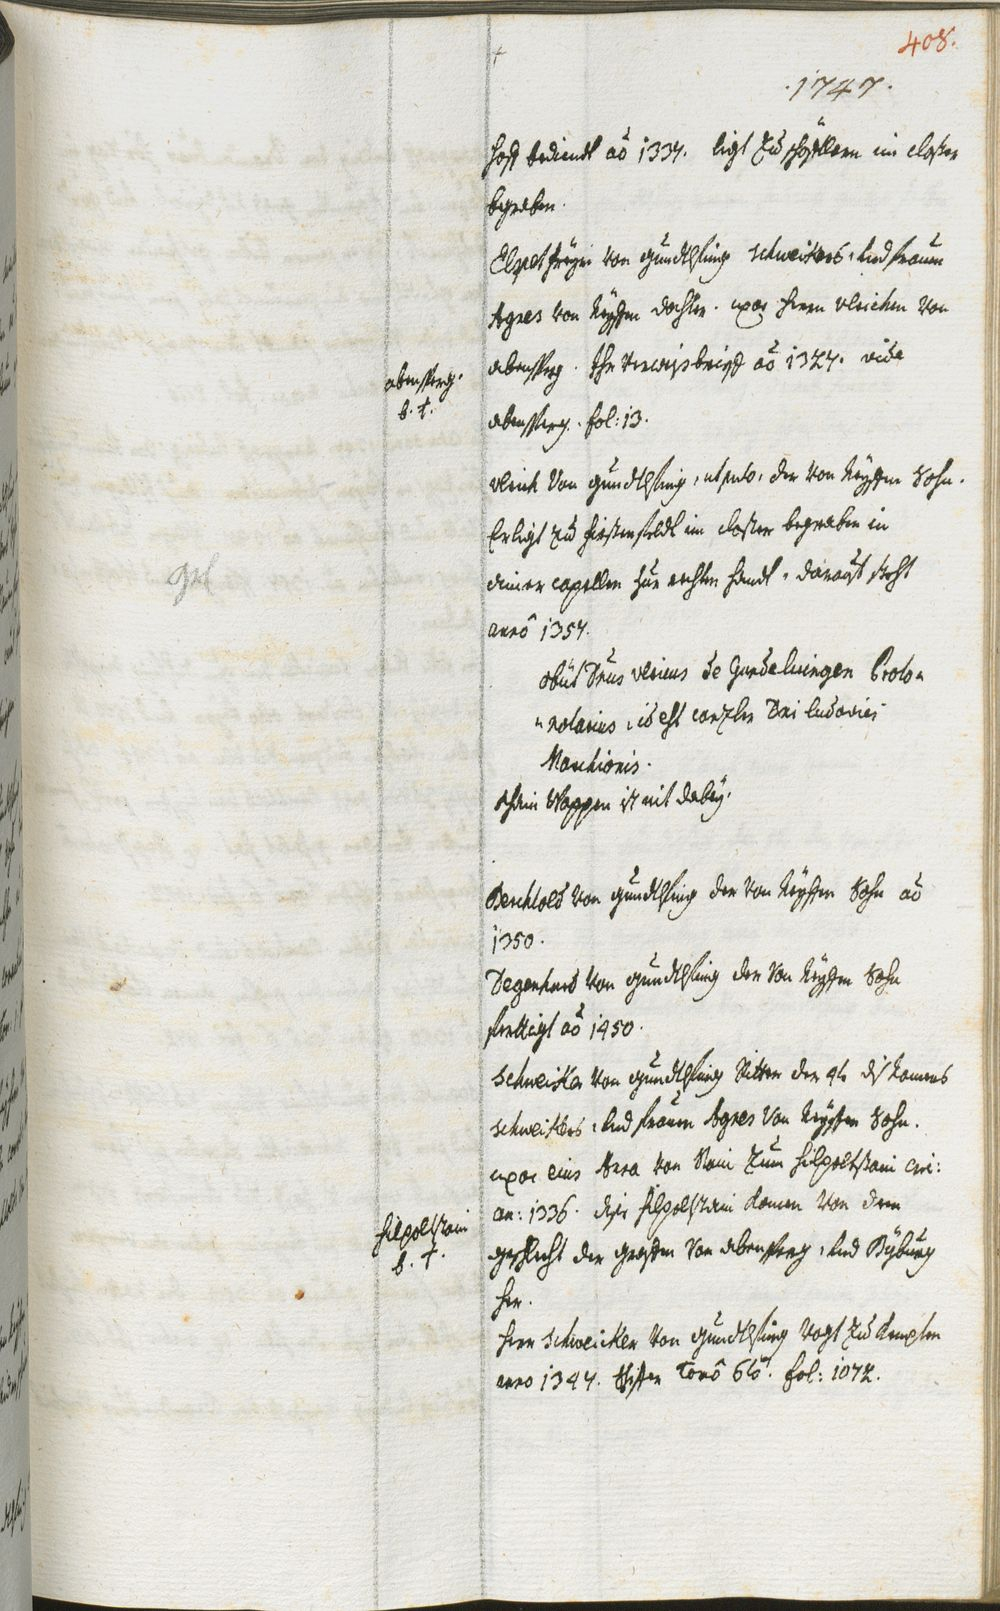 408.
.1747.
hoff bediendt aō 1334. ligt zu schöfflern im closter
begraben.
Elspet freyin von gundlfing schweikers, und frauen
Agnes von Neyffen dochter. uxor herrn ulrichen von
abensperg. Ihr verweisbrief aō 1324. vide
abensperg. fol: 13.
abensperg.
b. t.
ulrich von gundlfing, ut puto, der von Neyffen Sohn.
Er ligt zu fürstenfeldt im closter begraben in
ainer capellen zur rechten handt, darauf steht
anno 1354.
obiit Dnus ulricus de Gundelvingen Proto-
-notarius, id est canzler Dni ludovici
Marchionis.
sein Wappen ist nit dabey.
Berchtold von gundlfing der von Neyffen Sohn aō
1350.
Degenhard von gundlfing der von Neyffen Sohn
aō 1450.
schweiker von gundlfing Ritter der 4te diss Namens
schweikers, und frauen Agnes von Neyffen Sohn.
uxor eius Anna von Stain zum hilpoltstain
an: 1336. dise hilpolstain komen von dem
geschlecht der graffen von abensperg, und Rohburg
her.
hilpoltstain
b. t.
herr schweicker von gundlfing vogt zu kempten
anno 1347. Tomô 6tô. fol: 1072.